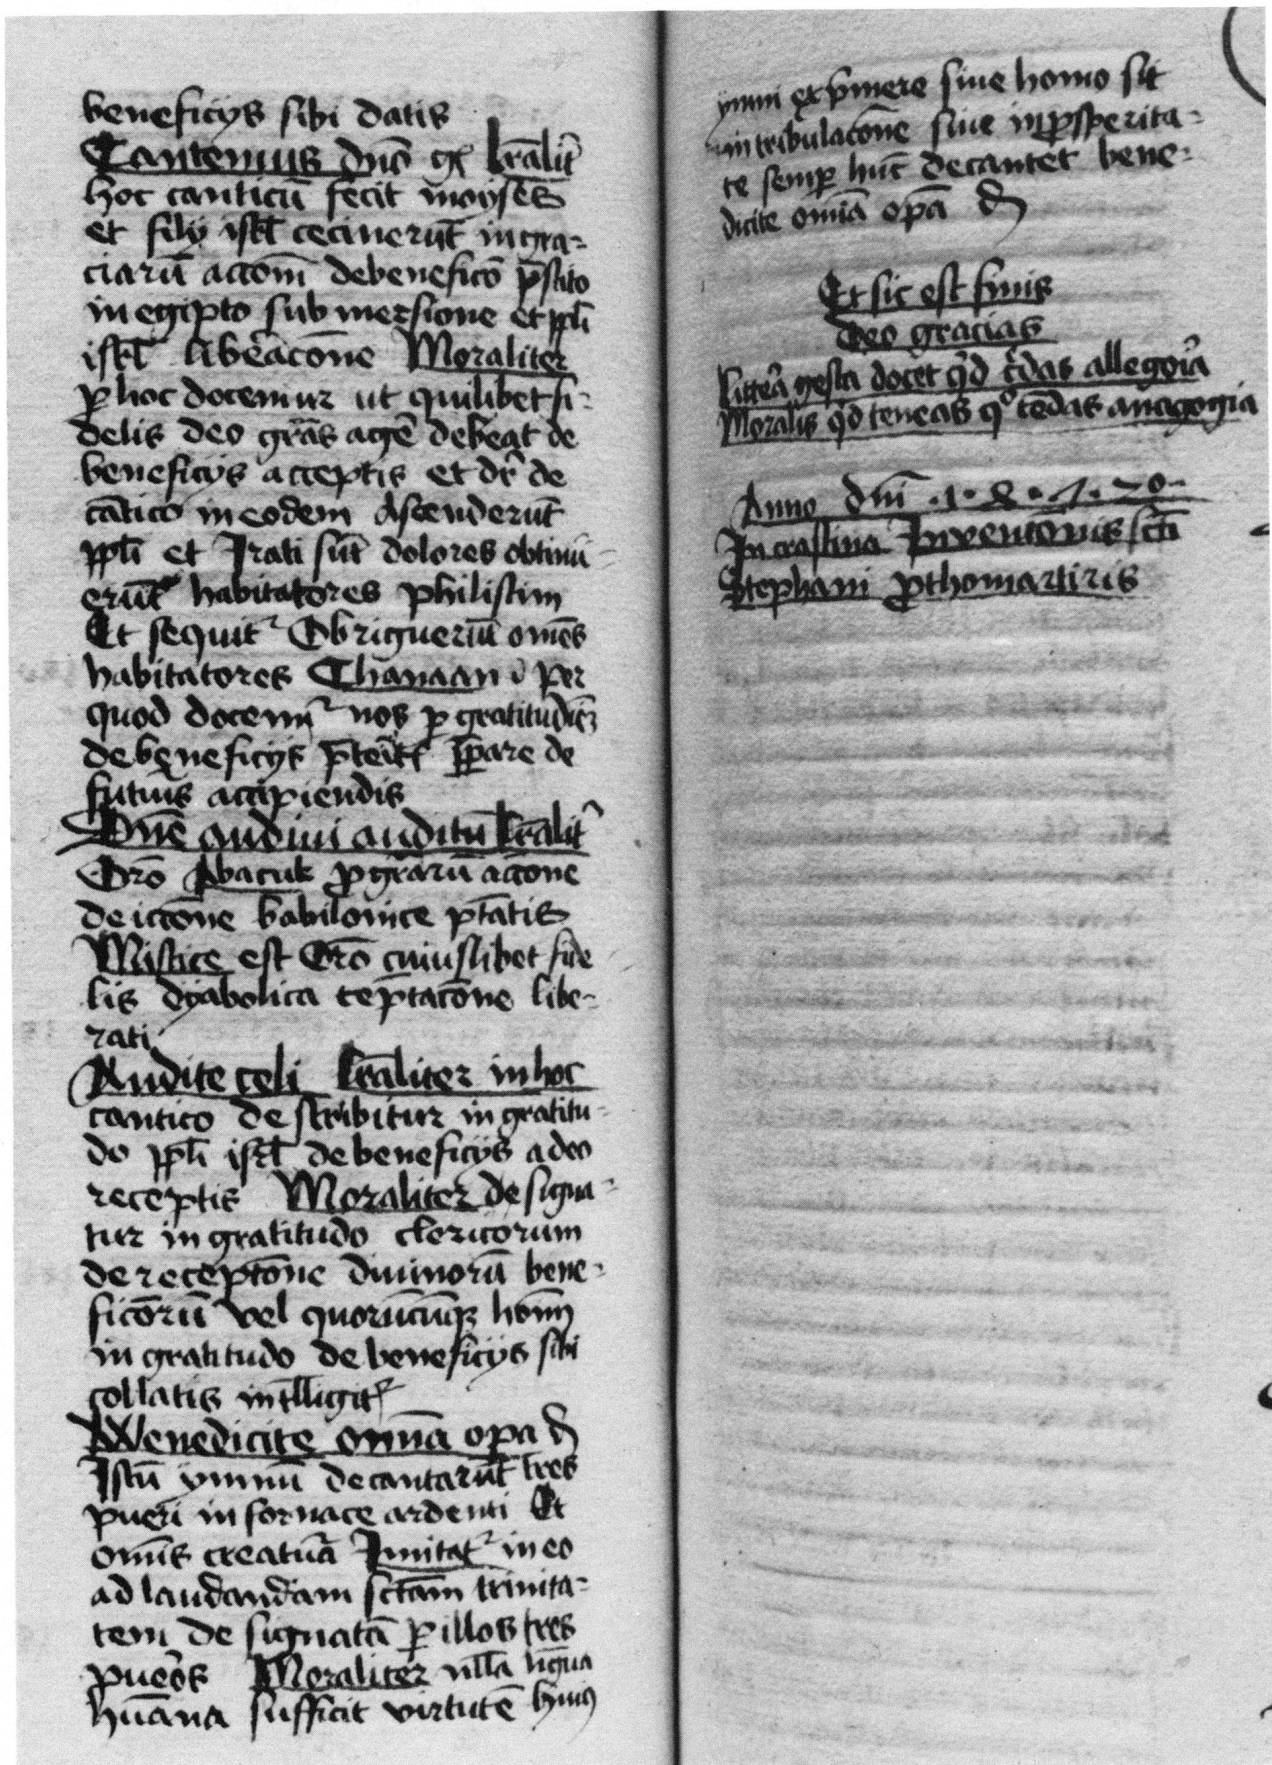 beneficijs sibi datis
Cantemus dn̄o gͥ lr̄alit᷑
hoc canticū fecit moyses
et filij isrl̄ cecinerūt in gra=
ciarū acc̄om̄ de benefic̄o p̄stito
in egipto submersione et ppl̄i
isrl̄ liberac̄one Moraliter
p̄ hoc docemur ut quilibet fi-
delis deo gr̄as agē debeat de
beneficijs acceptis et dr̄ de
cātico in eodem Ascenderūt
ppl̄i et Irati sūt dolores obtinu-
erūt habitatores philistim
Et sequit᷑ Obriguerūt om̄es
habitatores Chanaan per
quod docem᷑ nos p̄ gratitudiēȝ
de beneficijs p̄teit᷑ p̄pare de
futuris accipiendis
Dn̄e audiui auditū lr̄alit᷑
Or̄o Abacuk p̄ gr̄arū acc̄one
de iecc̄one babilonice pt̄atis
Mistice est Or̄o cuiuslibet fide
lis dyabolica tēptac̄one libe-
rati
Audite celi lr̄aliter in hoc
cantico describitur ingratitu-
do ppl̄i isrl̄ de beneficijs a deo
receptis Moraliter designa-
tur ingratitudo clericorum
de recept̄one diuinorū bene-
fic̄orū vel quorūcūqȝ hoīm
ingratitudo de beneficijs sibi
collatis intelligit᷑
Benedicite om̄ia op̄a dn̄i
Istū ymnū decantarūt tres
pueri in fornace ardenti Et
om̄is creatura Inuitat᷑ in eo
ad laudandam sc̄tam trinita=
tem designatā p̄ illos tres
pueros Moraliter nulla ligua
hūana sufficit virtutē huiꝯ
ymni exp̄mere siue homo sit
in tribulac̄one siue in p̄sperita=
te semp̄ hūc decantet bene-
dicite om̄ia op̄a dn̄i
Et sic est finis
deo gracias
litterā gesta docet qͥd cr̄das allegoria
Moralis qͥd teneas qͦ tēdas anagogia
Anno dn̄i .1.8.7.20.
In crastina Inuent̄onis sc̄ti
Stephani p̄thomartiris